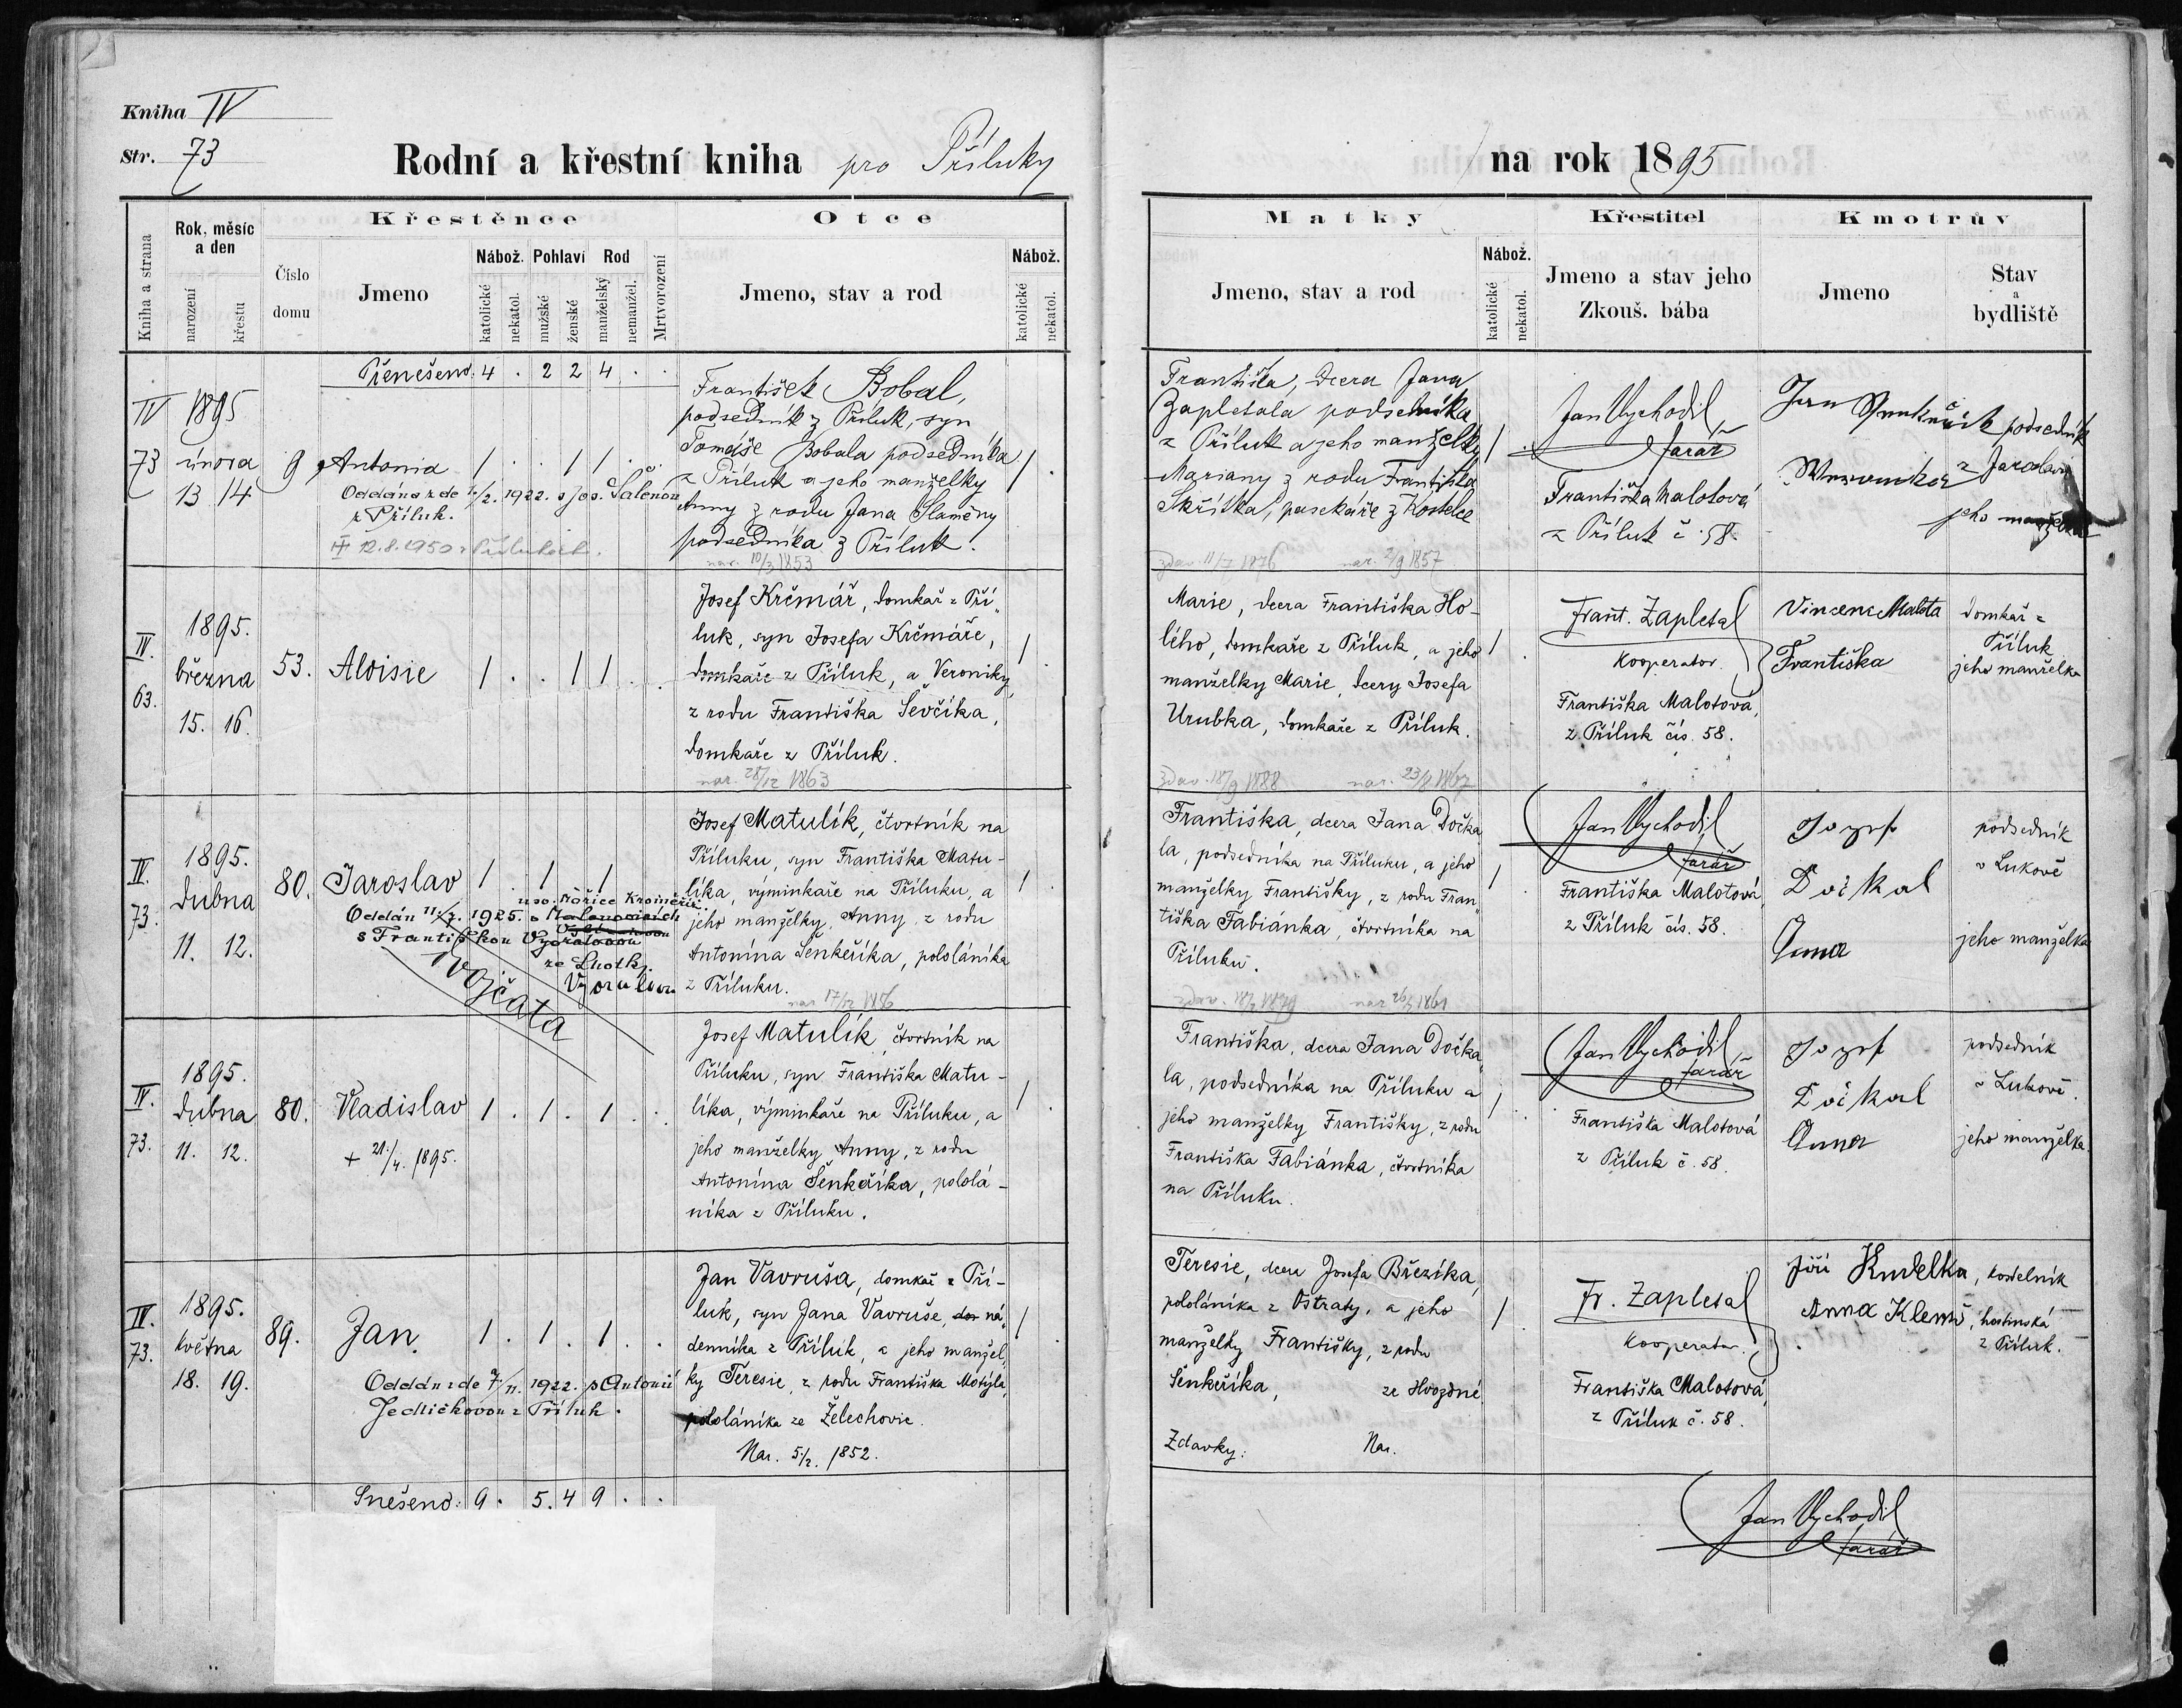 Kniha IV
Str. 73
Rodní a křestní kniha pro Příluky
na rok 1895
Kniha a strana
Rok, měsíc a den
narození
křestu
Číslo domu
Křestěnce
Jmeno
Nábož.
katolické
nekatol.
Pohlaví
mužské
ženské
Rod
manželský
nemanžel.
Mrtvorození
Otce
Jmeno, stav a rod
Nábož.
katolické
nekatol.
Matky
Jmeno, stav a rod
Nábož.
katolické
nekatol.
Křestitel
Jmeno a stav jeho
Zkouš. bába
Kmotrův
Jmeno
Stav
a
bydliště
Přenešeno: 4 . 2 2 4 . .
IV
73
1895
února
13 14
9
Antonia
1 . . 1 1 . .
Oddána zde 1/2. 1922. s Jos. Šalenou
z Příluk.
12.8.1950 v Přílukách.
František Bobal,
podsedník z Příluk, syn
Tomáše Bobala podsedníka
z Příluk a jeho manželky
Anny z rodu Jana Slaměny
podsedníka z Příluk.
nar. 10/3 1853
1 .
Františka, dcera Jana
Zapletala podsedníka
z Příluk a jeho manželky
Mariany z rodu Františka
Skřítka, pasekáře z Kostelce
zdav. 11/7 1876 nar. 2/9 1857
1 .
Jan Vychodil
farář
Františka Malotová
z Příluk č. 58.
Jan
podsedník
z Jaroslavi
jeho manželka
IV.
63.
1895.
března
15. 16.
53.
Aloisie
1 . . 1 1 . .
Josef Krčmář, domkař z Pří-
luk, syn Josefa Krčmáře,
domkaře z Příluk, a Veroniky,
z rodu Františka Ševčíka,
domkaře z Příluk.
nar. 28/12 1863
1 .
Marie, dcera Františka Ho-
lého, domkaře z Příluk, a jeho
manželky Marie, dcery Josefa
Urubka, domkaře z Příluk.
zdav. 18/9 1888 nar. 1867
1 .
Frant. Zapletal
kooperator.
Františka Malotová,
z Příluk čís. 58.
Vincenc Malota
domkař z
Příluk
Františka
jeho manželka
IV.
73.
1895.
dubna
11. 12.
80.
Jaroslav
1 . 1 1
Oddán 11/7. 1925.
s Františkou
ze Lhotky.
dvojčata
Josef Matulík, čtvrtník na
Příluku, syn Františka Matu-
líka, výminkaře na Příluku, a
jeho manželky, Anny, z rodu
Antonína Šenkeříka, pololáníka
z Příluku.
nar. 17/12 1856
1 .
Františka, dcera Jana Dočka-
la, podsedníka na Příluku, a jeho
manželky Františky, z rodu Fran-
tiška Fabiánka, čtvrtníka na
Příluku.
1 .
Jan Vychodil
farář
Františka Malotová,
z Příluk čís. 58.
Jozef
Dočkal
podsedník
v Lukově
Anna
jeho manželka
IV.
73.
1895.
dubna
11. 12.
80.
Vladislav
1 . 1 . 1 . .
+ 21./4. 1895.
Josef Matulík, čtvrtník na
Příluku, syn Františka Matu-
líka, výminkaře na Příluku, a
jeho manželky Anny, z rodu
Antonína Šenkeříka, pololá-
níka z Příluku.
1 .
Františka, dcera Jana Dočka-
la, podsedníka na Příluku a
jeho manželky Františky, z rodu
Františka Fabiánka, čtvrtníka
na Příluku.
1 .
Jan Vychodil
farář
Františka Malotová
z Příluk č. 58.
Jozef
Dočkal
podsedník
v Lukově.
Anna
jeho manželka.
IV.
73.
1895.
května
18. 19.
89.
Jan.
1 . 1 . 1 . .
Oddán zde 7/11. 1922. s Antonií
Jedličkovou z Příluk.
Jan Vavruša, domkař z Pří-
luk, syn Jana Vavruše, dom ná-
denníka z Příluk, a jeho manžel-
ky Teresie, z rodu Františka Motýla,
pololáníka ze Želechovic.
Nar. 5./2. 1852.
1 .
Teresie, dcera Josefa Březíka,
pololáníka z Ostraty, a jeho
manželky Františky, z rodu
Šenkeříka, ze Hvozdné.
Zdavky: Nar.
1 .
Fr. Zapletal
kooperator.
Františka Malotová,
z Příluk č. 58.
Jiří Kudelka, kostelník
Anna Klemš, hostinská
z Příluk.
Snešeno: 9 . 5 . 4 9 . .
Jan Vychodil
farář